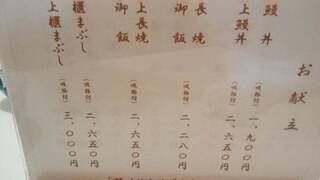 お献立
鰻丼
(吸物付) 一、九〇〇円
上鰻丼
(吸物付) 二、六五〇円
長焼
御飯
(吸物付) 二、二八〇円
上長焼
御飯
(吸物付) 二、六五〇円
櫃まぶし
(吸物付) 二、六五〇円
上櫃まぶし
(吸物付) 三、〇〇〇円